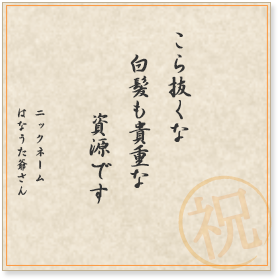 こら抜くな
白髪も貴重な
資源です
ニックネーム
はなうた爺さん
祝